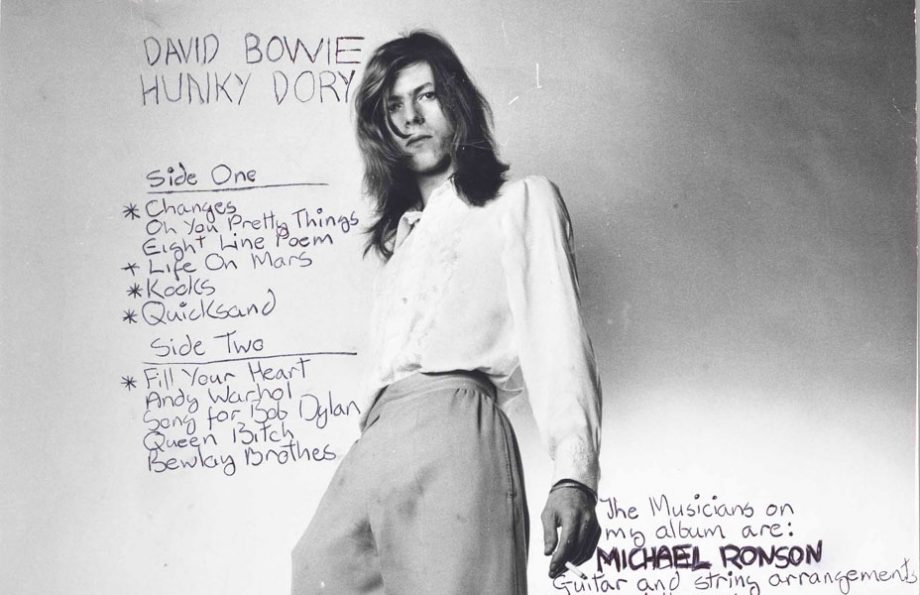 DAVID BOWIE
HUNKY DORY
Side One
* Changes
Oh You Pretty Things
Eight Line Poem
* Life On Mars
* Kooks
* Quicksand
Side Two
* Fill Your Heart
Andy Warhol
Song for Bob Dylan
Queen Bitch
Bewlay Brothes
The Musicians on
my album are:
MICHAEL RONSON
Guitar and string arrangements